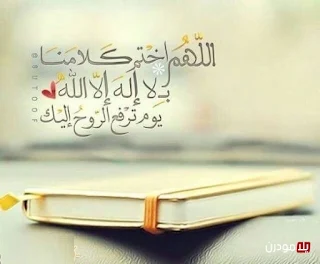 اللَّهُم اخْتِم كَلامَنَا
بِـ لا إلهَ إلَّا اللهُ
يوم ترفع الرّوح إليْك
يلا مودرن